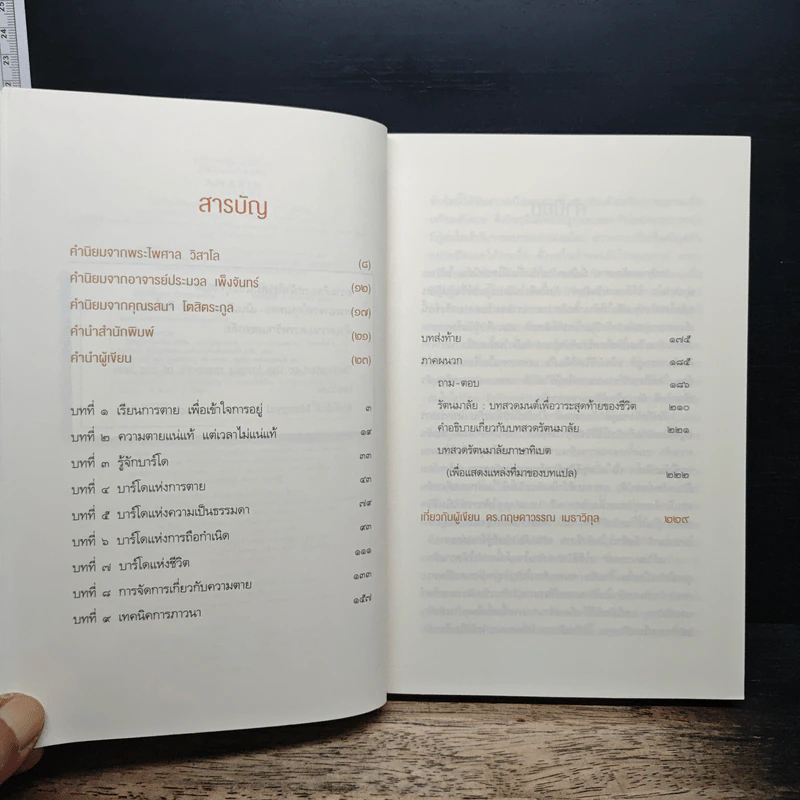 สารบัญ
คำนิยมจากพระไพศาล วิสาโล (๘)
คำนิยมจากอาจารย์ประมวล เพ็งจันทร์ (๑๒)
คำนิยมจากคุณรสนา โตสิตระกูล (๑๗)
คำนำสำนักพิมพ์ (๒๑)
คำนำผู้เขียน (๒๓)
บทที่ ๑ เรียนการตาย เพื่อเข้าใจการอยู่ ๓
บทที่ ๒ ความตายแน่แท้ แต่เวลาไม่แน่แท้ ๑๙
บทที่ ๓ รู้จักบาร์โด ๓๓
บทที่ ๔ บาร์โดแห่งการตาย ๔๓
บทที่ ๕ บาร์โดแห่งความเป็นธรรมดา ๗๙
บทที่ ๖ บาร์โดแห่งการถือกำเนิด ๙๓
บทที่ ๗ บาร์โดแห่งชีวิต ๑๑๑
บทที่ ๘ การจัดการเกี่ยวกับความตาย ๑๓๓
บทที่ ๙ เทคนิคการภาวนา ๑๕๗
บทส่งท้าย ๑๗๕
ภาคผนวก ๑๘๕
ถาม-ตอบ ๑๘๖
รัตนมาลัย : บทสวดมนต์เพื่อวาระสุดท้ายของชีวิต ๒๑๐
คำอธิบายเกี่ยวกับบทสวดรัตนมาลัย ๒๒๑
บทสวดรัตนมาลัยภาษาทิเบต
(เพื่อแสดงแหล่งที่มาของบทแปล) ๒๒๒
เกี่ยวกับผู้เขียน ดร.กฤษดาวรรณ เมธาวิกุล ๒๒๙
22
23
24
25